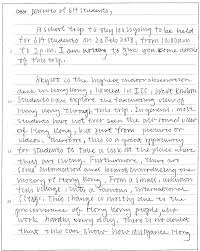 Dear parents of 6M students,
A school trip to sky100 is going to be held
for 6M students on 26 Feb 2018, from 10:30am
to 2p.m. I am writing to give you some details
of this trip.
Sky100 is the highest indoor observation
deck in Hong Kong, located in ICC, West Kowloon.
Students can explore the fascinating view of
Hong Kong through this trip. In general, most
students have not ever seen the all-round view
of Hong Kong, but just from pictures or
videos. Therefore, this is a great opportunity
for students to take a look at the place where
they are living. Furthermore, there are
some information and boards introducing the
history of Hong Kong. From a small, unknown
fish village, into a famous, international
city. This change is mostly due to the
perseverance of Hong Kong people who
work hardly every day. There is no doubt
that this can show how Hong